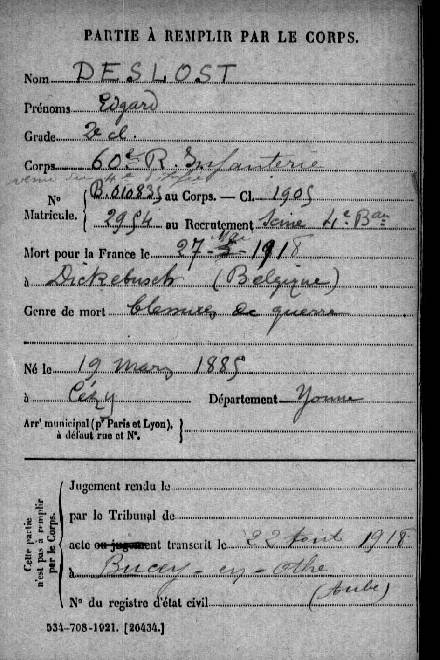 PARTIE À REMPLIR PAR LE CORPS.
Nom DESLOST
Prénoms Edgard
Grade 2e cl.
Corps 60e R. Infanterie
N° Matricule. { B.010835 au Corps. — Cl. 1905
2954 au Recrutement Seine 4e Bau
Mort pour la France le 27 Mai 1918
à Dickebusch (Belgique)
Genre de mort blessures de guerre
Né le 19 mars 1885
à Cézy Département Yonne
Arrt municipal (pr Paris et Lyon), à défaut rue et N°. }
Cette partie n'est pas à remplir par le Corps.
Jugement rendu le
par le Tribunal de
acte ou jugement transcrit le 22 Août 1918
à Bucey-en-Othe
(Aube)
N° du registre d'état civil
534-708-1921. [26434.]